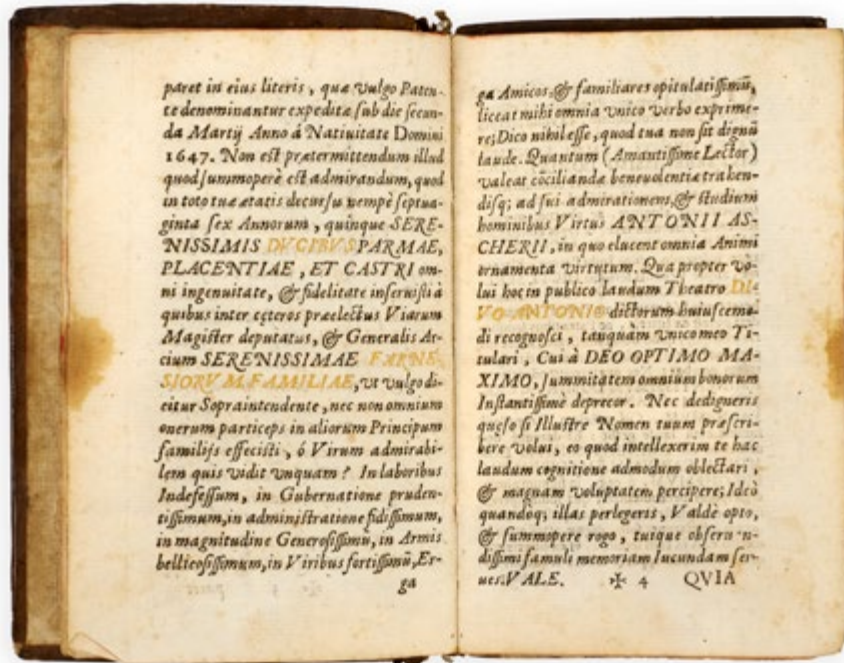 paret in eius literis, quæ vulgo Paten-
te denominantur expeditæ sub die secun-
da Martij Anno á Natiuitate Domini
1647. Non est prætermittendum illud
quod summoperè est admirandum, quod
in toto tuæ ætatis decursu nempè septua-
ginta sex Annorum, quinque SERE-
NISSIMIS DVCIBVS PARMAE,
PLACENTIAE, ET CASTRI om-
ni ingenuitate, & fidelitate inseruisti à
quibus inter cęteros præelectus Viarum
Magister deputatus, & Generalis Ar-
cium SERENISSIMAE FARNE-
SIORVM FAMILIAE, vt vulgo di-
citur Sopraintendente, nec non omnium
onerum particeps in aliorum Principum
familijs effecisti, ó Virum admirabi-
lem quis vidit vnquam? In laboribus
Indefessum, in Gubernatione pruden-
tissimum, in administratione fidissimum,
in magnitudine Generosissimũ, in Armis
bellicosissimum, in Viribus fortissimũ, Er-
ga
ga Amicos, & familiares opitulatissimũ,
liceat mihi omnia vnico verbo exprime-
re; Dico nihil esse, quod tua non sit dignũ
laude. Quantum (Amantissime Lector)
valeat cõciliandæ beneuolentiæ trahen-
disq; ad sui admirationem, & studium
hominibus Virtus ANTONII AS-
CHERII, in quo elucent omnia Animi
ornamenta virtutum. Qua propter vo-
lui hoc in publico laudum Theatro DI-
VO ANTONIO dictorum huiuscemo-
di recognosci, tanquam vnico meo Ti-
tulari, Cui à DEO OPTIMO MA-
XIMO, summitatem omnium bonorum
Instantissimè deprecor. Nec dedigneris
quęso si Illustre Nomen tuum præscri-
bere volui, eo quod intellexerim te hac
laudum cognitione admodum oblectari,
& magnam voluptatem percipere; Ideò
quandoq; illas perlegeris, Valdè opto,
& summopere rogo, tuique obseru n-
dissimi famuli memoriam Iucundam ser-
ues. VALE. ✠ 4 QVIA